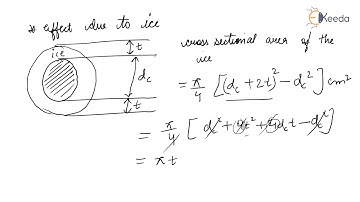 Ekeeda
* effect due to ice
ice
t
dc
t
cross sectional area of the
ice
= π/4 [(dc + 2t)² - dc²] cm²
= π/4 [dc² + 4t² + 4dct - dc²]
= πt